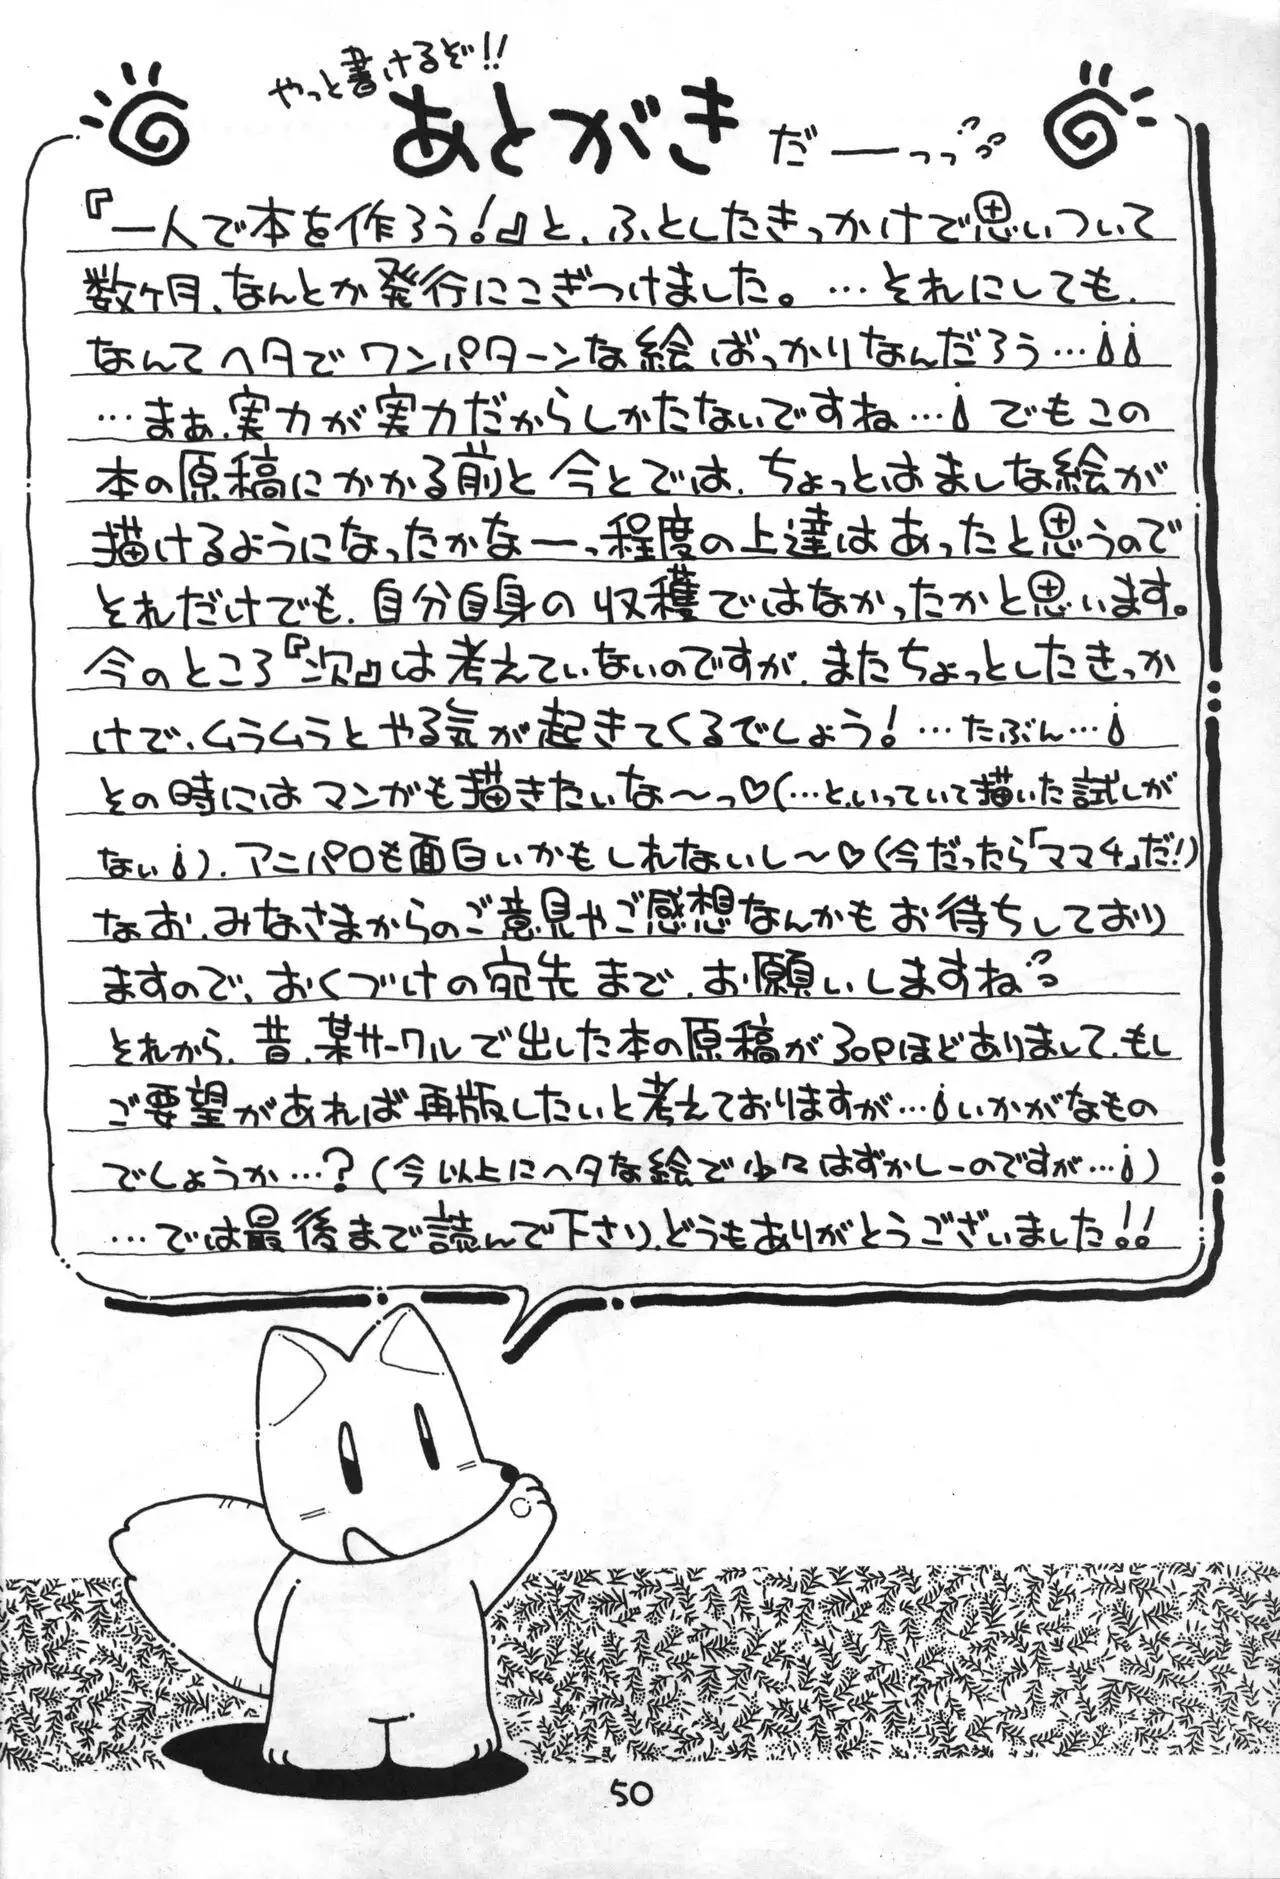 やっと書けるぞ!!
あとがきだーっっ
『一人で本を作ろう!』と、ふとしたきっかけで思いついて
数ヶ月、なんとか発行にこぎつけました。…それにしても、
なんてヘタでワンパターンな絵ばっかりなんだろう…
…まぁ、実力が実力だからしかたないですね…でもこの
本の原稿にかかる前と今とでは、ちょっとはましな絵が
描けるようになったかなーっ程度の上達はあったと思うので
それだけでも、自分自身の収穫ではなかったかと思います。
今のところ『次』は考えていないのですが、またちょっとしたきっか
けで、ムラムラとやる気が起きてくるでしょう!…たぶん…
その時にはマンガも描きたいな〜っ♡(…と、いっていて描いた試しが
ないi)、アニパロも面白いかもしれないし〜♡(今だったら「ママ4」だ!)
なお、みなさまからのご意見やご感想なんかもお待ちしており
ますので、おくづけの宛先まで、お願いしますね
それから、昔、某サークルで出した本の原稿が30pほどありまして、もし
ご要望があれば再版したいと考えておりますが…いかがなもの
でしょうか…?(今以上にヘタな絵で少々はずかしーのですが…)
…では最後まで読んで下さり、どうもありがとうございました!!
50